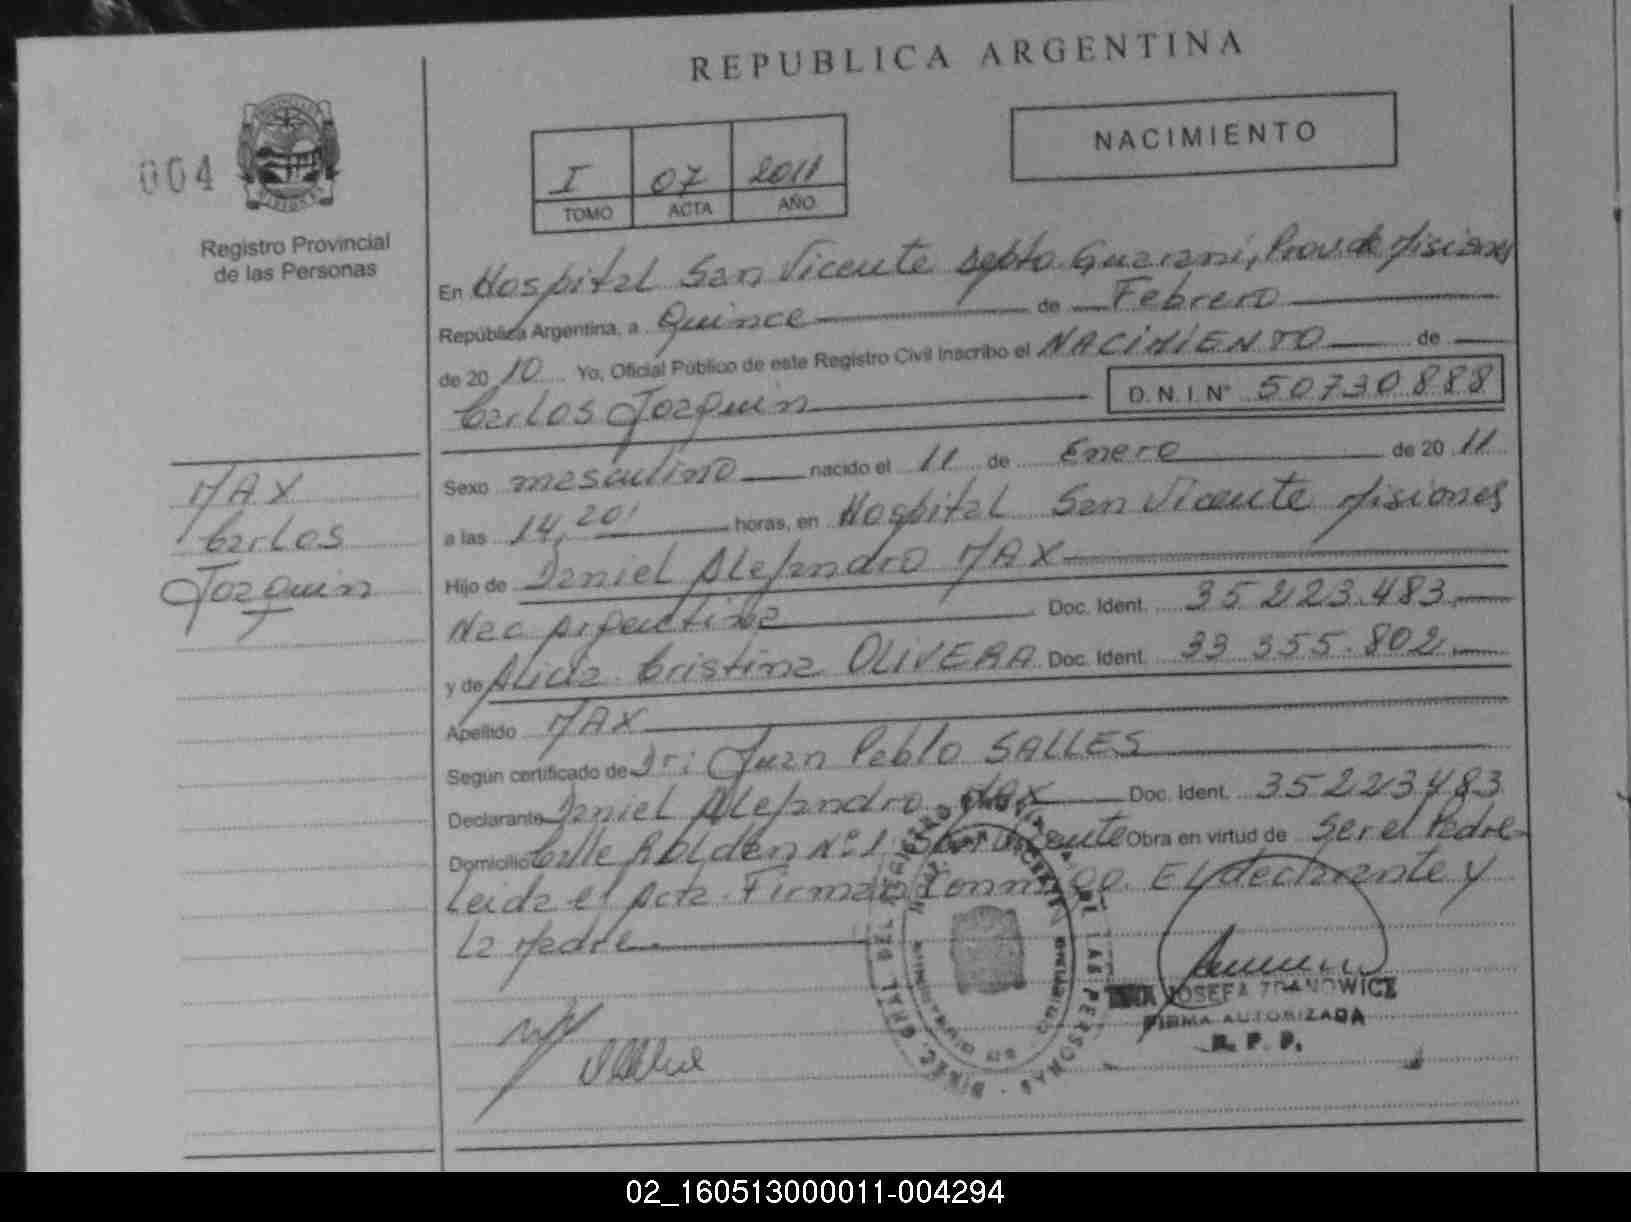 REPUBLICA ARGENTINA
NACIMIENTO
004
I 07 2011
TOMO ACTA AÑO
Registro Provincial
de las Personas
En Hospital San Vicente Depto. Guarani, Prov. de Misiones
República Argentina, a Quince de Febrero
de 20 10 Yo, Oficial Público de este Registro Civil Inscribo el NACIMIENTO de
Carlos Joaquin D.N.I. Nº 50730888
MAX
Carlos
Joaquin
Sexo masculino nacido el 11 de Enero de 20 11
a las 14,20' horas, en Hospital San Vicente Misiones
Hijo de Daniel Alejandro MAX
Nac Argentina Doc. Ident. 35223.483
y de Alicia Cristina OLIVERA Doc. Ident. 33 355.802
Apellido MAX
Según certificado de Dr: Juan Pablo SALLES
Declarante Daniel Alejandro MAX Doc. Ident. 35223483
Domicilio Calle Roldan Nº 1 San Vicente Obra en virtud de Ser el Padre
Leida el Acta. Firman Conmigo. El declarante y
La Madre.
JOSEFA ZDANOWICZ
FIRMA AUTORIZADA
R. P. P.
02_160513000011-004294